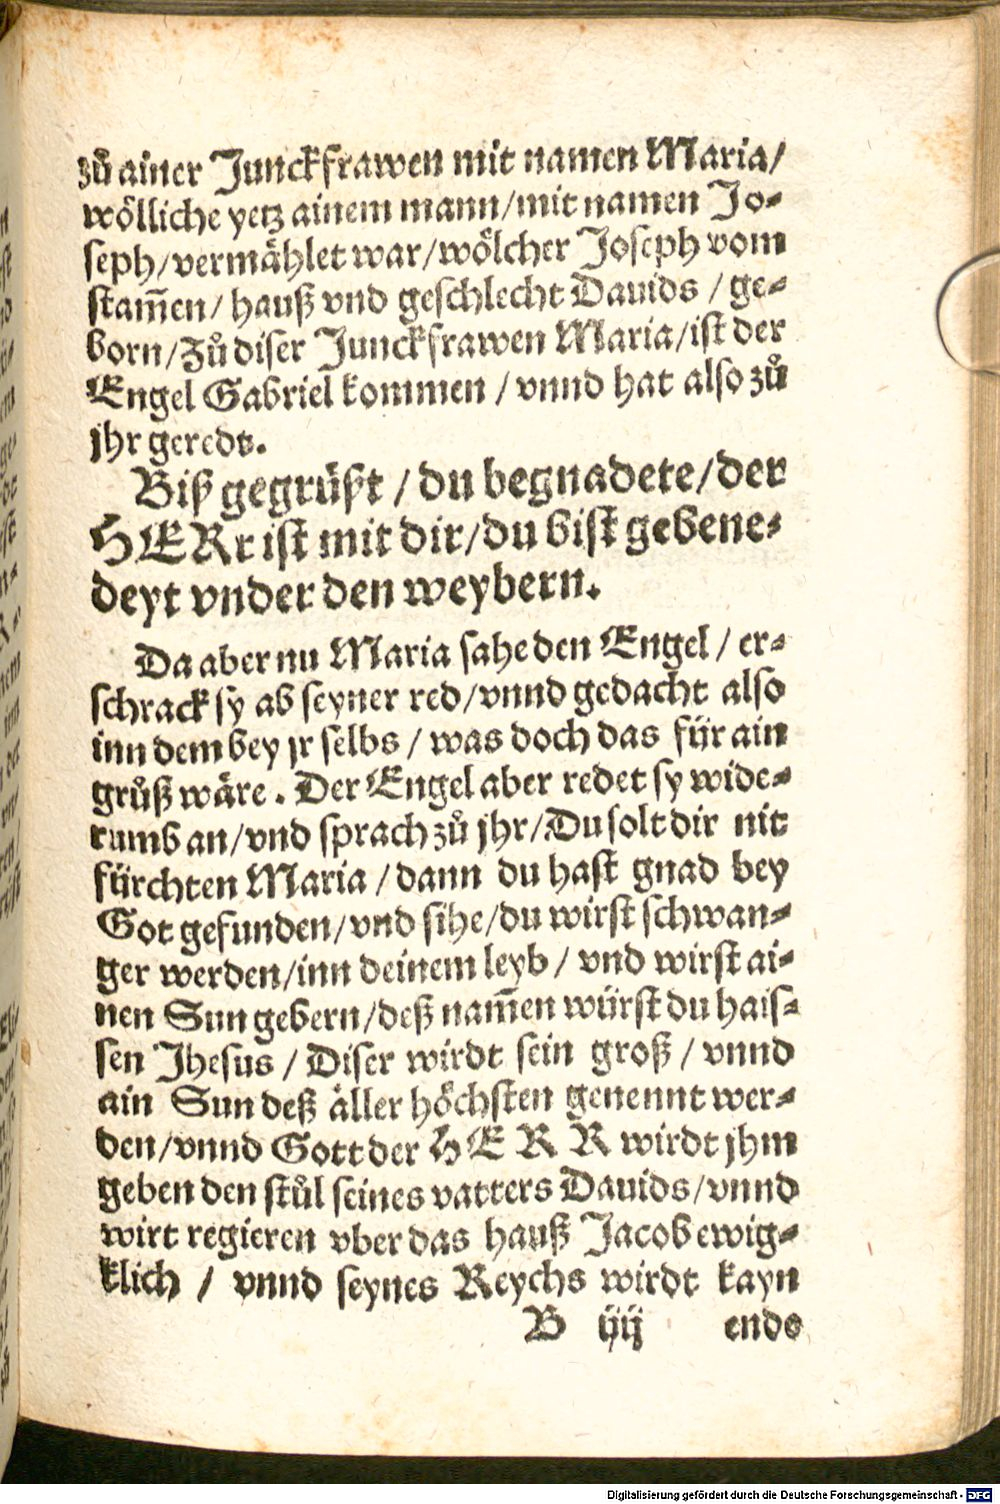 zů ainer Junckfrawen mit namen Maria/
wölliche yetz ainem mann/mit namen Jo⸗
seph/vermählet war/wölcher Joseph vom
stam̄en/ hauß vnd geschlecht Dauids / ge⸗
born/Zů diser Junckfrawen Maria/ist der
Engel Gabriel kommen / vnnd hat also zů
jhr geredt.
Biß gegrüßt / du begnadete/der
HERr ist mit dir/du bist gebene⸗
deyt vnder den weybern.
Da aber nu Maria sahe den Engel / er⸗
schrack sy ab seyner red/vnnd gedacht also
inn dem bey jr selbs / was doch das für ain
grůß wäre. Der Engel aber redet sy wide⸗
rumb an/vnd sprach zů jhr/Du solt dir nit
fürchten Maria / dann du hast gnad bey
Got gefunden/vnd sihe/du wirst schwan⸗
ger werden/inn deinem leyb / vnd wirst ai⸗
nen Sun gebern/deß nam̄en würst du hais⸗
sen Jhesus / Diser wirdt sein groß / vnnd
ain Sun deß äller höchsten genennt wer⸗
den/vnnd Gott der HERR wirdt jhm
geben den stůl seines vatters Dauids/vnnd
wirt regieren vber das hauß Jacob ewig⸗
klich / vnnd seynes Reychs wirdt kayn
B iiij ends
Digitalisierung gefördert durch die Deutsche Forschungsgemeinschaft - DFG